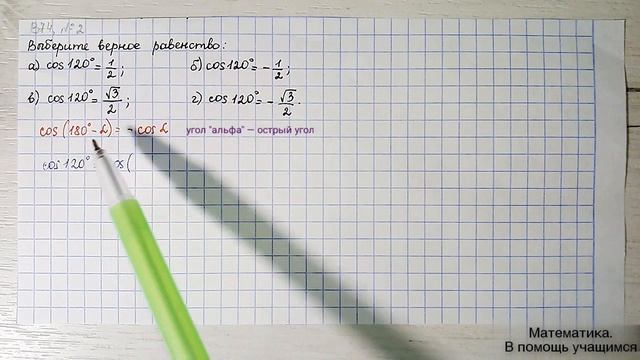 №2
Выберите верное равенство:
а) cos120° = 1/2; б) cos120° = -1/2;
в) cos120° = √3/2; г) cos120° = -√3/2.
cos(180°-α) = -cosα угол "альфа" — острый угол
cos120° = cos(
Математика.
В помощь учащимся